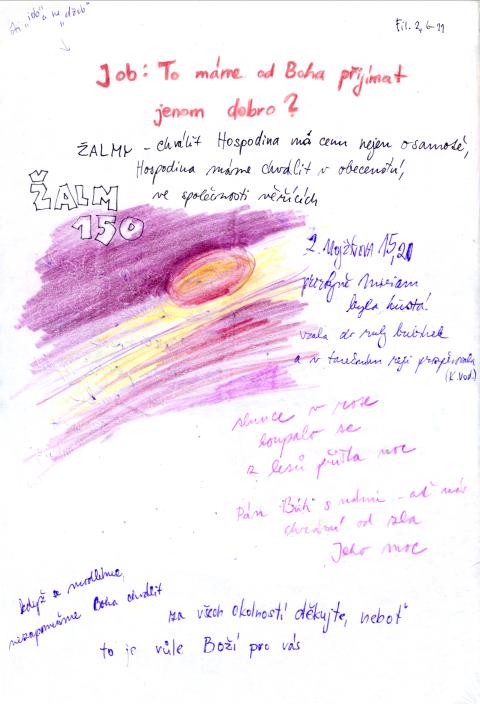 "job" a ne "džob"
Fil. 2, 6-11
Job: To máme od Boha přijímat
jenom dobro?
ŽALMY - chválit Hospodina má cenu nejen o samotě,
Hospodina máme chválit v obecenství,
ve společnosti věřících
ŽALM
150
2. Mojžíšova 15,20
Miriam
byla
vzala do ruky bubínek
a v tanečním reji
(K. Vod.)
slunce v rose
koupalo se
z lesů přišla noc
Pán Bůh s námi - ať nás
chrání od zla
Jeho moc
když a modleme,
nezapomeňme Boha chválit
za všech okolností děkujte, neboť
to je vůle Boží pro vás